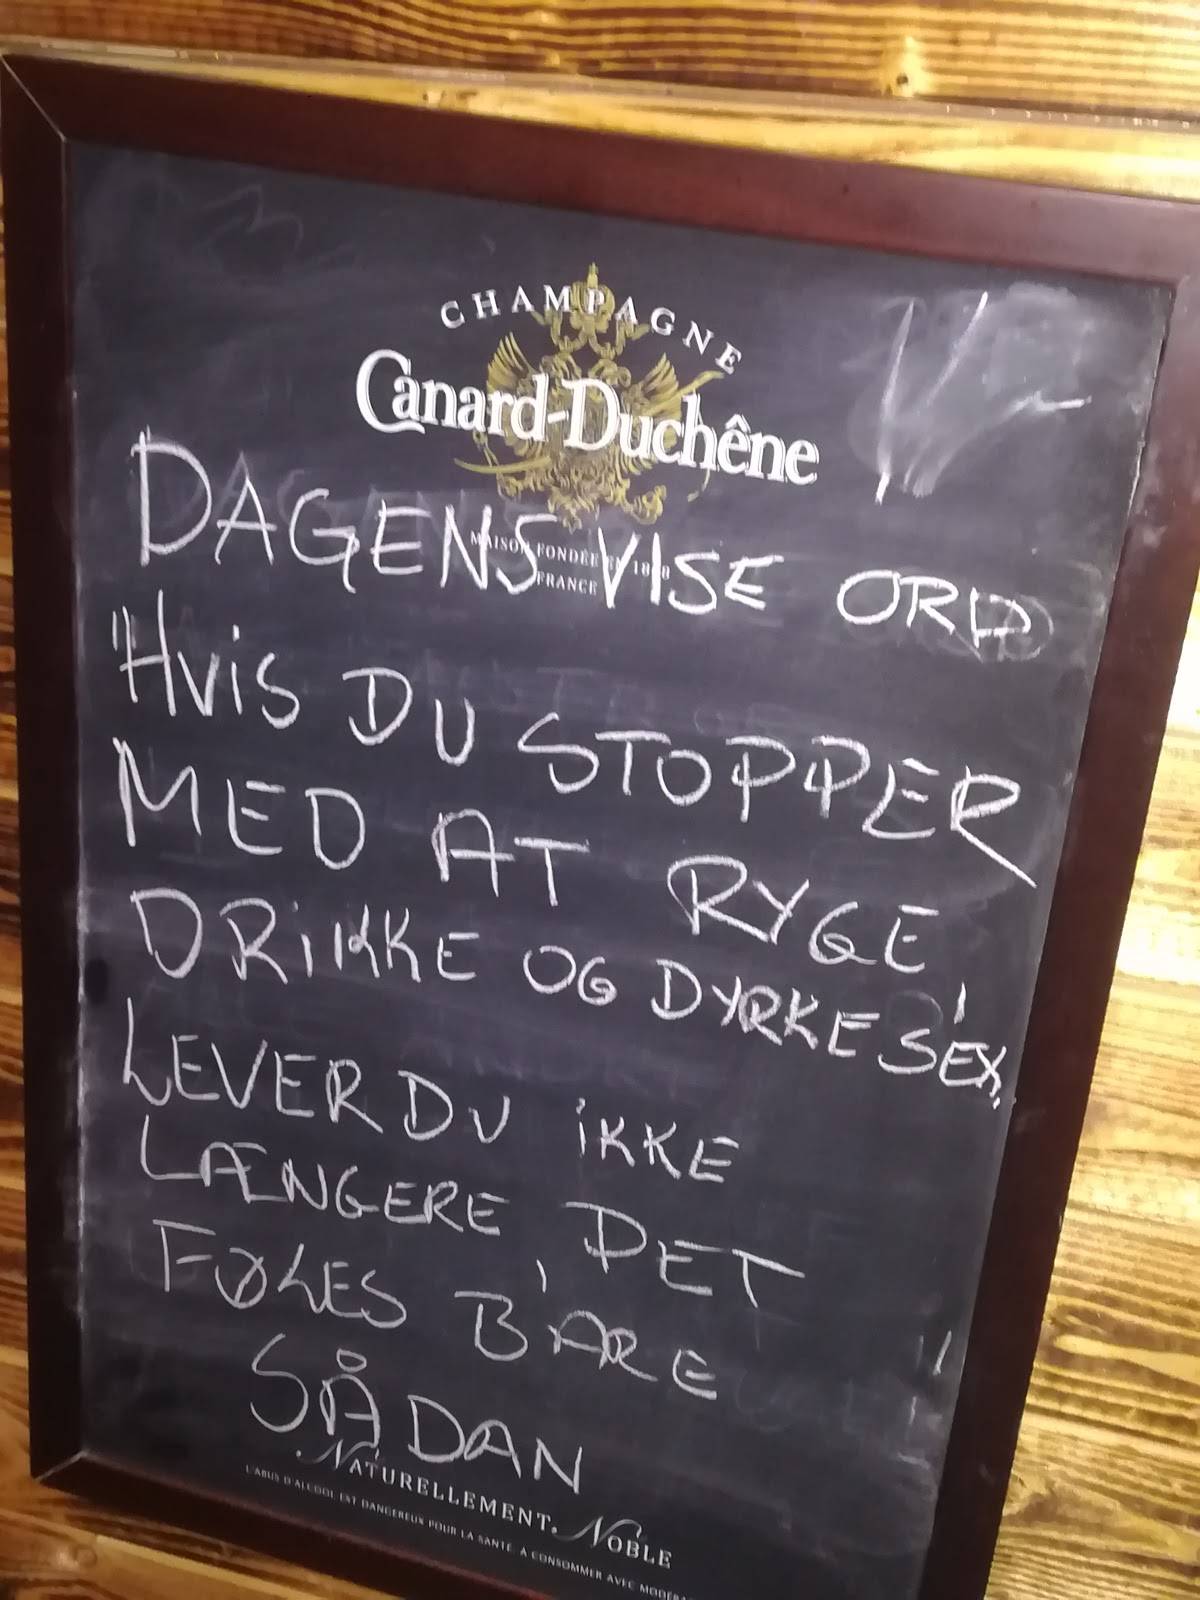 CHAMPAGNE
Canard-Duchêne
MAISON FONDÉE EN 1868
FRANCE
DAGENS VISE ORD
"HviS DU STOPPER
MED AT RYGE,
DRiKKE OG DYRKE SEX,
LEVER DU iKKE
LÆNGERE, DET
FØLES BARE
SÅDAN
NATURELLEMENT, NOBLE
L'ABUS D'ALCOOL EST DANGEREUX POUR LA SANTÉ. À CONSOMMER AVEC